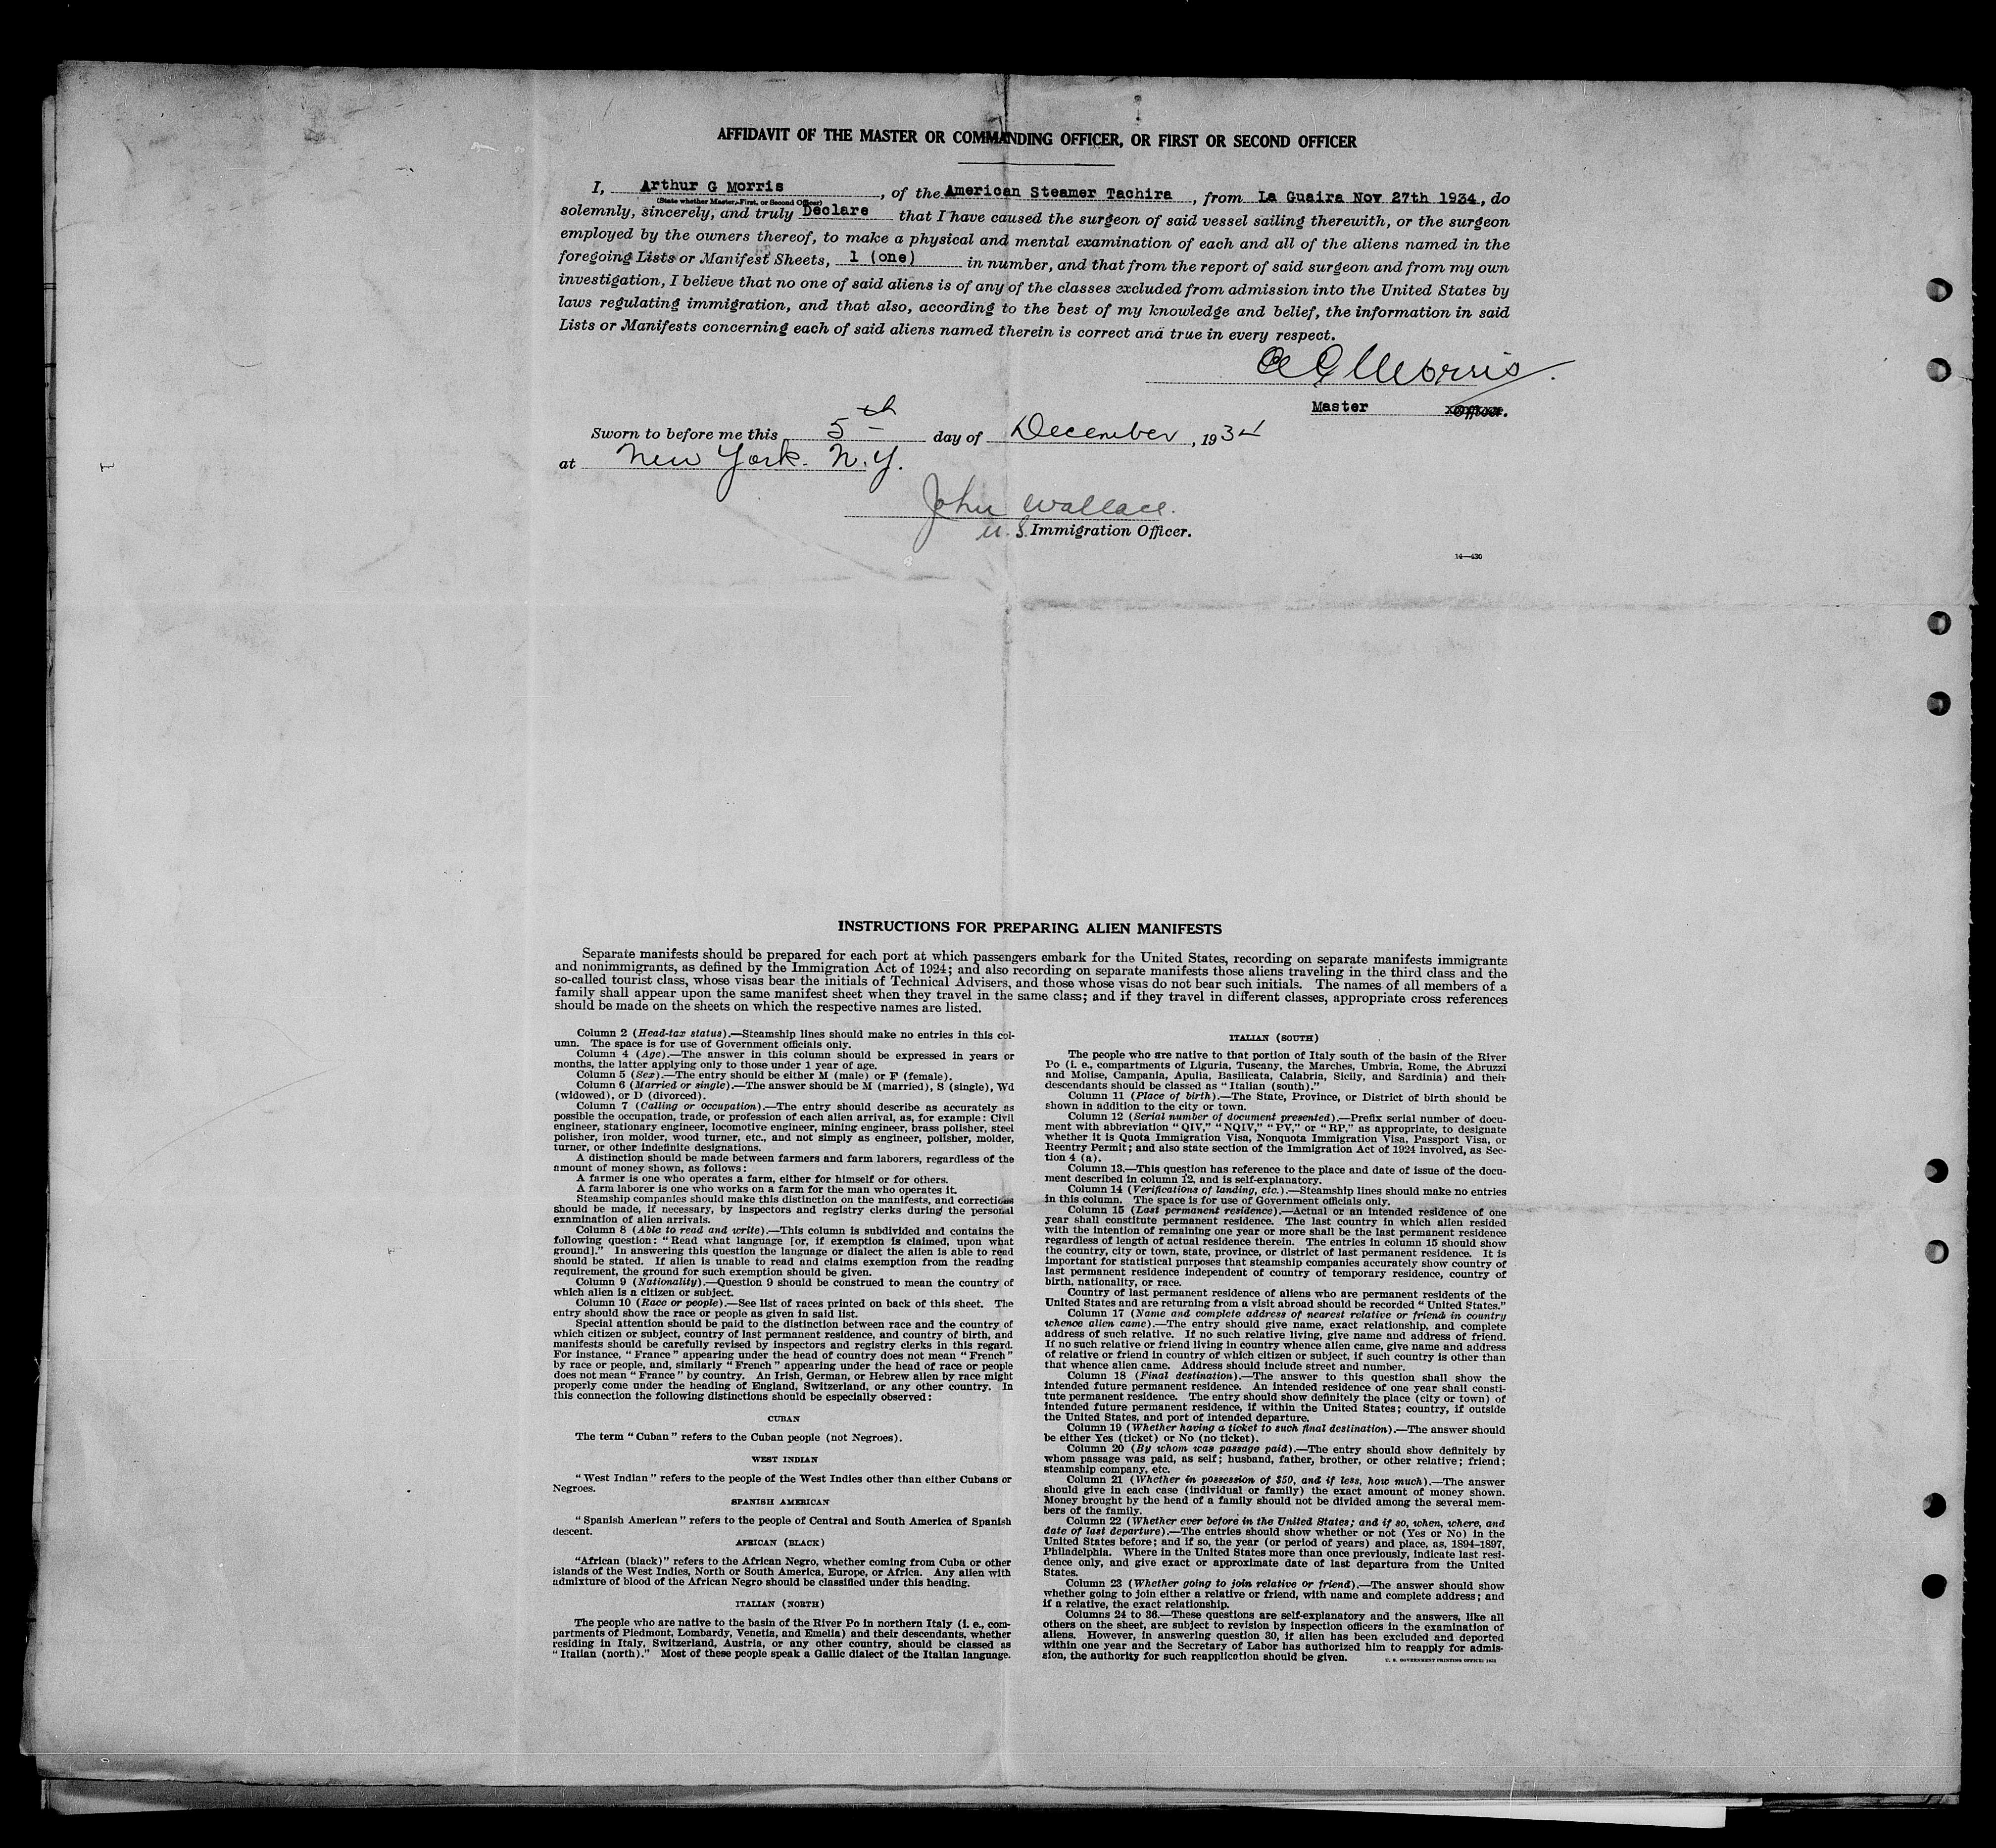 AFFIDAVIT OF THE MASTER OR COMMANDING OFFICER, OR FIRST OR SECOND OFFICER
I, Arthur G Morris, of the American Steamer Tachira, from La Guaira Nov 27th 1934, do
(State whether Master, First, or Second Officer)
solemnly, sincerely, and truly Declare that I have caused the surgeon of said vessel sailing therewith, or the surgeon
employed by the owners thereof, to make a physical and mental examination of each and all of the aliens named in the
foregoing Lists or Manifest Sheets, 1 (one) in number, and that from the report of said surgeon and from my own
investigation, I believe that no one of said aliens is of any of the classes excluded from admission into the United States by
laws regulating immigration, and that also, according to the best of my knowledge and belief, the information in said
Lists or Manifests concerning each of said aliens named therein is correct and true in every respect.
A G Morris.
Master Officer.
Sworn to before me this 5th day of December, 1934
at New York. N.Y.
John Wallace.
U. S. Immigration Officer.
14—430
INSTRUCTIONS FOR PREPARING ALIEN MANIFESTS
Separate manifests should be prepared for each port at which passengers embark for the United States, recording on separate manifests immigrants
and nonimmigrants, as defined by the Immigration Act of 1924; and also recording on separate manifests those aliens traveling in the third class and the
so-called tourist class, whose visas bear the initials of Technical Advisers, and those whose visas do not bear such initials. The names of all members of a
family shall appear upon the same manifest sheet when they travel in the same class; and if they travel in different classes, appropriate cross references
should be made on the sheets on which the respective names are listed.
Column 2 (Head-tax status).—Steamship lines should make no entries in this col-
umn. The space is for use of Government officials only.
Column 4 (Age).—The answer in this column should be expressed in years or
months, the latter applying only to those under 1 year of age.
Column 5 (Sex).—The entry should be either M (male) or F (female).
Column 6 (Married or single).—The answer should be M (married), S (single), Wd
(widowed), or D (divorced).
Column 7 (Calling or occupation).—The entry should describe as accurately as
possible the occupation, trade, or profession of each alien arrival, as, for example: Civil
engineer, stationary engineer, locomotive engineer, mining engineer, brass polisher, steel
polisher, iron molder, wood turner, etc., and not simply as engineer, polisher, molder,
turner, or other indefinite designations.
A distinction should be made between farmers and farm laborers, regardless of the
amount of money shown, as follows:
A farmer is one who operates a farm, either for himself or for others.
A farm laborer is one who works on a farm for the man who operates it.
Steamship companies should make this distinction on the manifests, and corrections
should be made, if necessary, by inspectors and registry clerks during the personal
examination of alien arrivals.
Column 8 (Able to read and write).—This column is subdivided and contains the
following question: "Read what language [or, if exemption is claimed, upon what
ground]." In answering this question the language or dialect the alien is able to read
should be stated. If alien is unable to read and claims exemption from the reading
requirement, the ground for such exemption should be given.
Column 9 (Nationality).—Question 9 should be construed to mean the country of
which alien is a citizen or subject.
Column 10 (Race or people).—See list of races printed on back of this sheet. The
entry should show the race or people as given in said list.
Special attention should be paid to the distinction between race and the country of
which citizen or subject, country of last permanent residence, and country of birth, and
manifests should be carefully revised by inspectors and registry clerks in this regard.
For instance, "France" appearing under the head of country does not mean "French"
by race or people, and, similarly "French" appearing under the head of race or people
does not mean "France" by country. An Irish, German, or Hebrew alien by race might
properly come under the heading of England, Switzerland, or any other country. In
this connection the following distinctions should be especially observed:
CUBAN
The term "Cuban" refers to the Cuban people (not Negroes).
WEST INDIAN
"West Indian" refers to the people of the West Indies other than either Cubans or
Negroes.
SPANISH AMERICAN
"Spanish American" refers to the people of Central and South America of Spanish
descent.
AFRICAN (BLACK)
"African (black)" refers to the African Negro, whether coming from Cuba or other
islands of the West Indies, North or South America, Europe, or Africa. Any alien with
admixture of blood of the African Negro should be classified under this heading.
ITALIAN (NORTH)
The people who are native to the basin of the River Po in northern Italy (i. e., com-
partments of Piedmont, Lombardy, Venetia, and Emelia) and their descendants, whether
residing in Italy, Switzerland, Austria, or any other country, should be classed as
"Italian (north)." Most of these people speak a Gallic dialect of the Italian language.
ITALIAN (SOUTH)
The people who are native to that portion of Italy south of the basin of the River
Po (i. e., compartments of Liguria, Tuscany, the Marches, Umbria, Rome, the Abruzzi
and Molise, Campania, Apulia, Basilicata, Calabria, Sicily, and Sardinia) and their
descendants should be classed as "Italian (south)."
Column 11 (Place of birth).—The State, Province, or District of birth should be
shown in addition to the city or town.
Column 12 (Serial number of document presented).—Prefix serial number of docu-
ment with abbreviation "QIV," "NQIV," "PV," or "RP," as appropriate, to designate
whether it is Quota Immigration Visa, Nonquota Immigration Visa, Passport Visa, or
Reentry Permit; and also state section of the Immigration Act of 1924 involved, as Sec-
tion 4 (a).
Column 13.—This question has reference to the place and date of issue of the docu-
ment described in column 12, and is self-explanatory.
Column 14 (Verifications of landing, etc.).—Steamship lines should make no entries
in this column. The space is for use of Government officials only.
Column 15 (Last permanent residence).—Actual or an intended residence of one
year shall constitute permanent residence. The last country in which alien resided
with the intention of remaining one year or more shall be the last permanent residence
regardless of length of actual residence therein. The entries in column 15 should show
the country, city or town, state, province, or district of last permanent residence. It is
important for statistical purposes that steamship companies accurately show country of
last permanent residence independent of country of temporary residence, country of
birth, nationality, or race.
Country of last permanent residence of aliens who are permanent residents of the
United States and are returning from a visit abroad should be recorded "United States."
Column 17 (Name and complete address of nearest relative or friend in country
whence alien came).—The entry should give name, exact relationship, and complete
address of such relative. If no such relative living, give name and address of friend.
If no such relative or friend living in country whence alien came, give name and address
of relative or friend in country of which citizen or subject, if such country is other than
that whence alien came. Address should include street and number.
Column 18 (Final destination).—The answer to this question shall show the
intended future permanent residence. An intended residence of one year shall consti-
tute permanent residence. The entry should show definitely the place (city or town) of
intended future permanent residence, if within the United States; country, if outside
the United States, and port of intended departure.
Column 19 (Whether having a ticket to such final destination).—The answer should
be either Yes (ticket) or No (no ticket).
Column 20 (By whom was passage paid).—The entry should show definitely by
whom passage was paid, as self; husband, father, brother, or other relative; friend;
steamship company, etc.
Column 21 (Whether in possession of $50, and if less, how much).—The answer
should give in each case (individual or family) the exact amount of money shown.
Money brought by the head of a family should not be divided among the several mem-
bers of the family.
Column 22 (Whether ever before in the United States; and if so, when, where, and
date of last departure).—The entries should show whether or not (Yes or No) in the
United States before; and if so, the year (or period of years) and place, as, 1894–1897,
Philadelphia. Where in the United States more than once previously, indicate last resi-
dence only, and give exact or approximate date of last departure from the United
States.
Column 23 (Whether going to join relative or friend).—The answer should show
whether going to join either a relative or friend, with name and complete address; and
if a relative, the exact relationship.
Columns 24 to 36.—These questions are self-explanatory and the answers, like all
others on the sheet, are subject to revision by inspection officers in the examination of
aliens. However, in answering question 30, if alien has been excluded and deported
within one year and the Secretary of Labor has authorized him to reapply for admis-
sion, the authority for such reapplication should be given.
U. S. GOVERNMENT PRINTING OFFICE: 1931